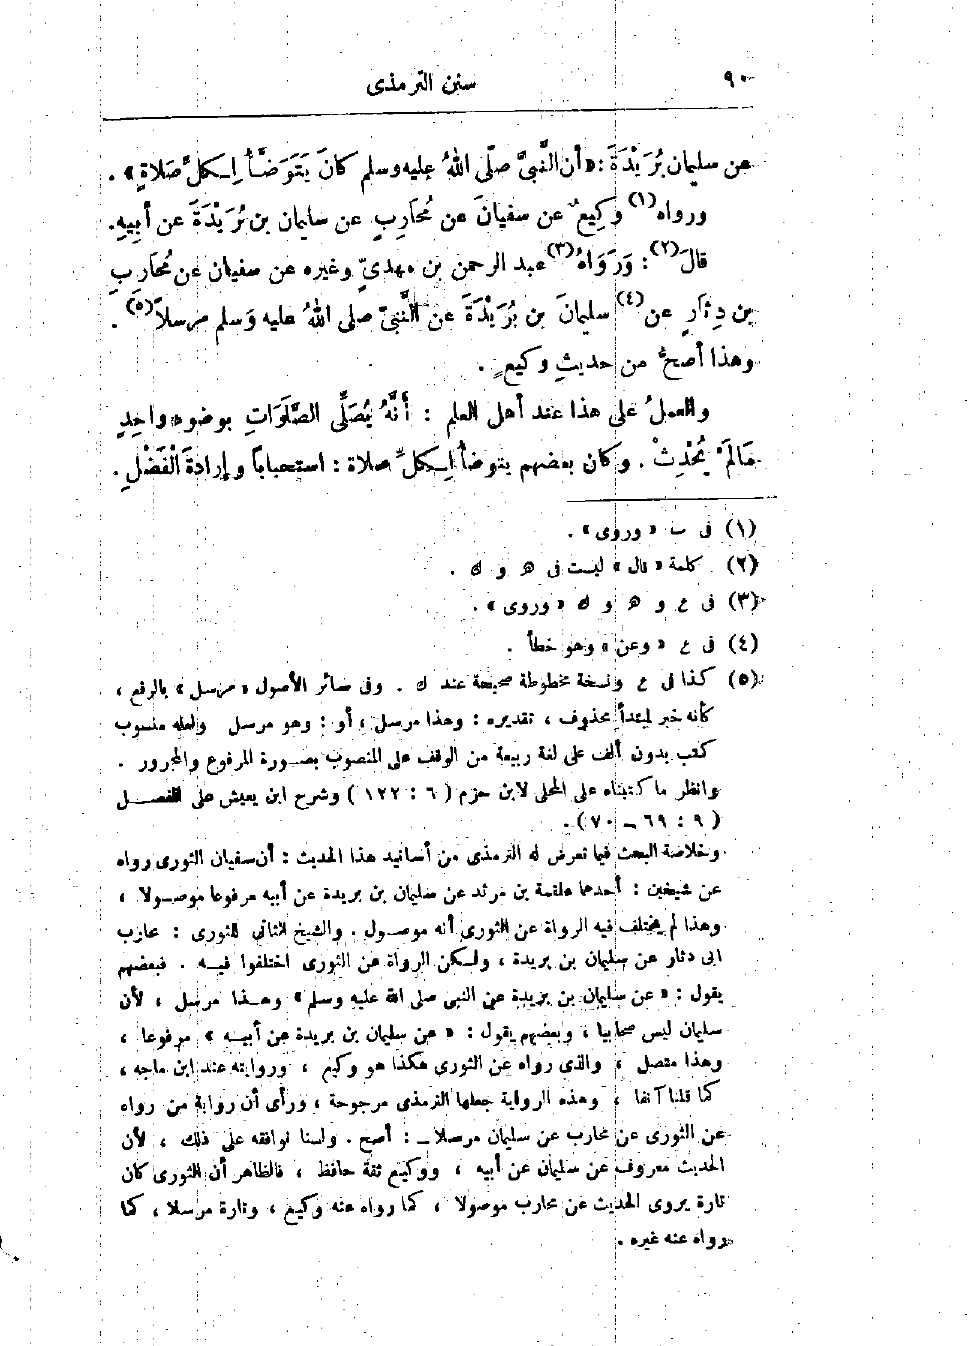 ٩٠
سنن الترمذى
عن سليمان بُرَيْدَةَ : «أن النَّبىَّ صلّى اللهُ عليه وسلم كانَ يَتَوَضَّأُ لِكلِّ صَلاةٍ» .
ورواه(١) وَكِيعٌ عن سفيانَ عن مُحَارِبٍ عن سليمان بن بُرَيْدَةَ عن أبِيهِ.
قالَ(٢) : وَرَوَاهُ(٣) عبد الرحمن بن مهدىٍّ وغيره عن سفيان عن مُحَارِبِ
بن دِثَارٍ عن(٤) سليمانَ بن بُرَيْدَةَ عن النَّبىِّ صلى اللهُ عليه وَسلم مرسلاً(٥) .
وهذا أصحُّ من حديثِ وكيعٍ .
والعملُ على هذا عند أهل العلم : أَنَّهُ يُصَلِّى الصَّلَوَاتِ بوضوء واحِدٍ
مَالَمْ يُحْدِثْ . وكان بعضهم يتوضأ لِكلِّ صلاة : استحبابًا وإرادةَ الْفَضْلِ .
(١) فى ب «وروى» .
(٢) كلمة «قال» ليست فى ه‍ و ك .
(٣) فى ع و ه‍ و ك «وروى» .
(٤) فى ع «وعن» وهو خطأ .
(٥) كذا فى ع ونسخة مخطوطة صحيحة عند ك . وفى سائر الأصول «مرسل» بالرفع ،
كأنه خبر لمبتدأ محذوف ، تقديره : وهذا مرسل ، أو : وهو مرسل ولعله منسوب
كتب بدون ألف على لغة ربيعة من الوقف على المنصوب بصورة المرفوع والمجرور .
وانظر ما كتبناه على المحلى لابن حزم (٦ : ١٢٢) وشرح ابن يعيش على المفصل
(٩ : ٦٩ ــ ٧٠).
وخلاصة البحث فيما تعرض له الترمذى من أسانيد هذا الحديث : أن سفيان الثورى رواه
عن شيخين : أحدهما علقمة بن مرثد عن سليمان بن بريدة عن أبيه مرفوعا موصولا ،
وهذا لم يختلف فيه الرواة عن الثورى أنه موصول . والشيخ الثانى للثورى : محارب
ابى دثار عن سليمان بن بريدة ، ولكن الرواة عن الثورى اختلفوا فيه . فبعضهم
يقول : «عن سليمان بن بريدة عن النبى صلى الله عليه وسلم» وهذا مرسل ، لأن
سليمان ليس صحابيا ، وبعضهم يقول : «عن سليمان بن بريدة عن أبيه» مرفوعا ،
وهذا متصل ، والذى رواه عن الثورى هكذا هو وكيع ، وروايته عند ابن ماجه ،
كما قلنا آنفا ، وهذه الرواية جعلها الترمذى مرجوحة ، ورأى أن رواية من رواه
عن الثورى عن محارب عن سليمان مرسلا ــ : أصح . ولسنا نوافقه على ذلك ، لأن
الحديث معروف عن سليمان عن أبيه ، ووكيع ثقة حافظ ، فالظاهر أن الثورى كان
تارة يروى الحديث عن محارب موصولا ، كما رواه عنه وكيع ، وتارة مرسلا ، كما
رواه عنه غيره .